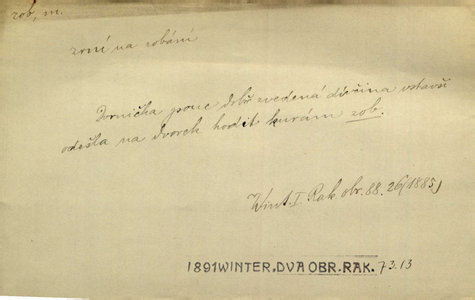 zob, m.
zrní na zobání
Dornička pouc dobř zvedená dívčina vstavši
odešla na dvorek hodit kurám zob.
Wint. I. Rak. obr. 88. 26 (1885)
1891WINTER.DVA OBR.RAK. 73.13